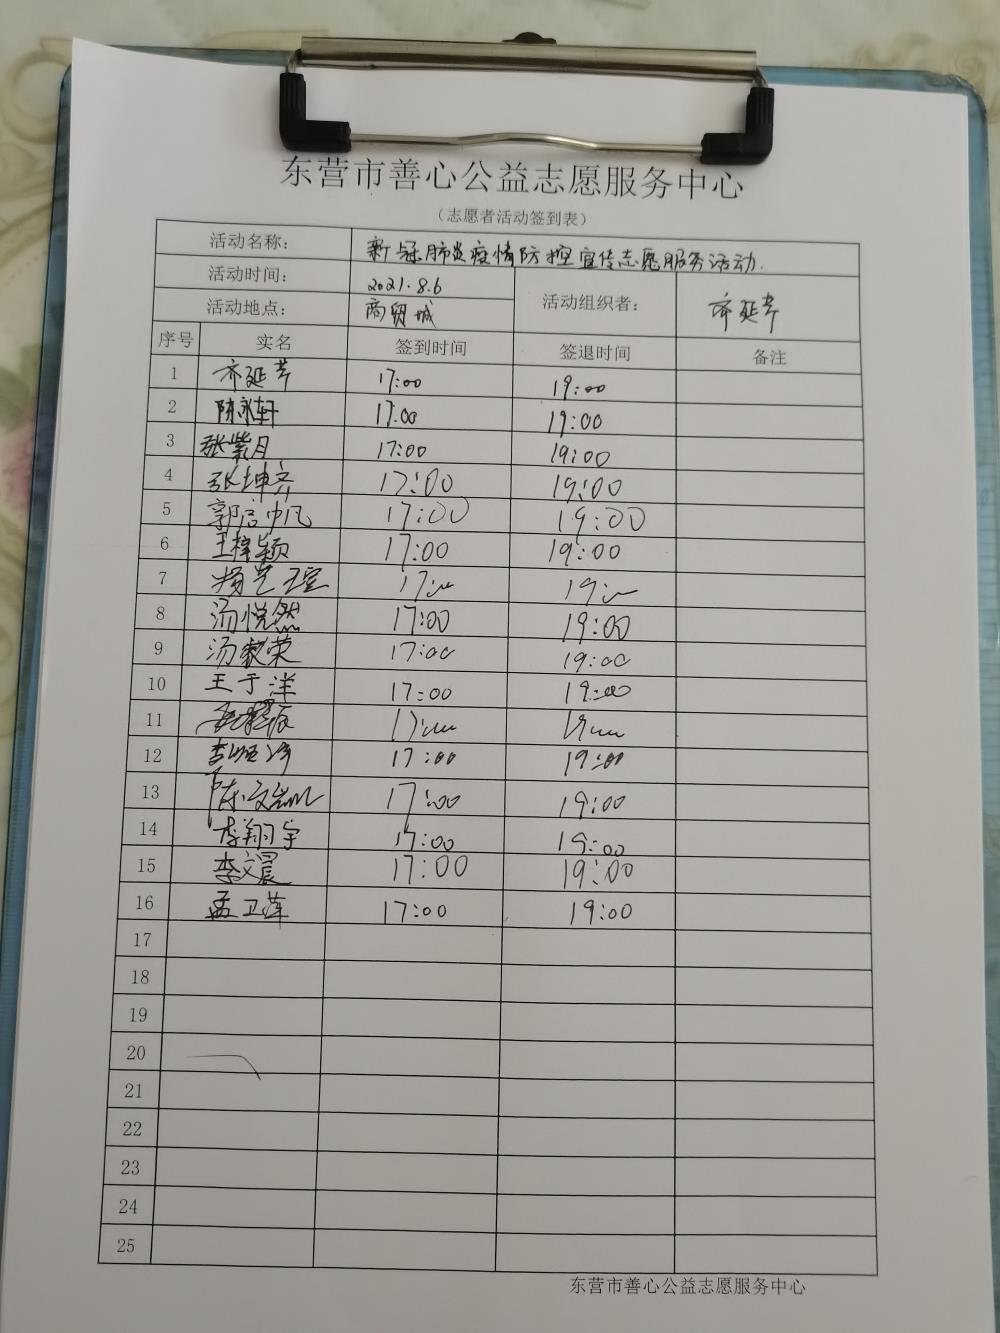 东营市善心公益志愿服务中心
（志愿者活动签到表）
活动名称： 新冠肺炎疫情防控宣传志愿服务活动.
活动时间： 2021.8.6
活动组织者： 齐延芹
活动地点： 商贸城
序号 实名 签到时间 签退时间 备注
1 齐延芹 17:00 19:00
2 陈永轩 17:00 19:00
3 张紫月 17:00 19:00
4 张坤齐 17:00 19:00
5 郭信帆 17:00 19:00
6 王梓颖 17:00 19:00
7 杨艺瑄 17:00 19:00
8 汤悦然 17:00 19:00
9 汤 荣 17:00 19:00
10 王于洋 17:00 19:00
11 17:00 19:00
12 17:00 19:00
13 陈文 17:00 19:00
14 李翔宇 17:00 19:00
15 李文晨 17:00 19:00
16 孟卫萍 17:00 19:00
17
18
19
20
21
22
23
24
25
东营市善心公益志愿服务中心